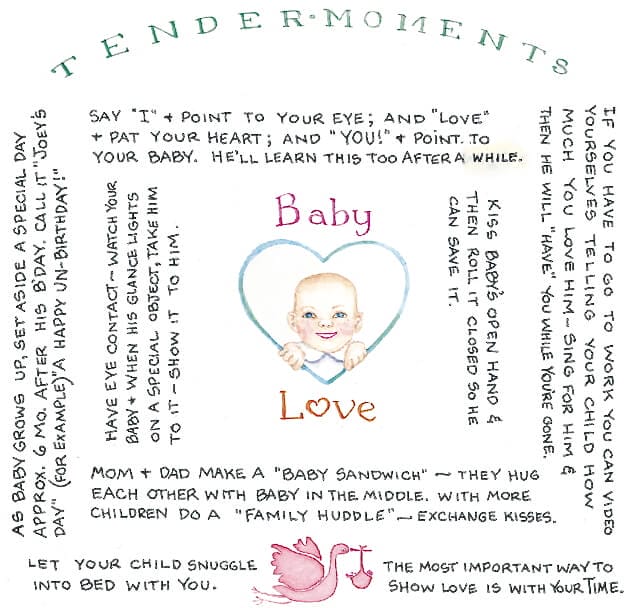 TENDER·MOMENTS
SAY "I" + POINT TO YOUR EYE; AND "LOVE"
+ PAT YOUR HEART; AND "YOU!" + POINT TO
YOUR BABY. HE'LL LEARN THIS TOO AFTER A WHILE.
AS BABY GROWS UP, SET ASIDE A SPECIAL DAY
APPROX. 6 MO. AFTER HIS B'DAY. CALL IT "JOEY'S
DAY" (FOR EXAMPLE) "A HAPPY UN-BIRTHDAY!"
HAVE EYE CONTACT~WATCH YOUR
BABY + WHEN HIS GLANCE LIGHTS
ON A SPECIAL OBJECT, TAKE HIM
TO IT - SHOW IT TO HIM.
Baby
Love
KISS BABY'S OPEN HAND &
THEN ROLL IT CLOSED SO HE
CAN SAVE IT.
IF YOU HAVE TO GO TO WORK YOU CAN VIDEO
YOURSELVES TELLING YOUR CHILD HOW
MUCH YOU LOVE HIM ~ SING FOR HIM &
THEN HE WILL "HAVE" YOU WHILE YOU'RE GONE.
MOM + DAD MAKE A "BABY SANDWICH" ~ THEY HUG
EACH OTHER WITH BABY IN THE MIDDLE. WITH MORE
CHILDREN DO A "FAMILY HUDDLE" ~ EXCHANGE KISSES.
LET YOUR CHILD SNUGGLE
INTO BED WITH YOU.
THE MOST IMPORTANT WAY TO
SHOW LOVE IS WITH YOUR TIME.